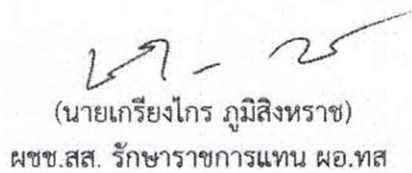 (นายเกรียงไกร ภูมิสิงหราช)
ผชช.สส. รักษาราชการแทน ผอ.ทส